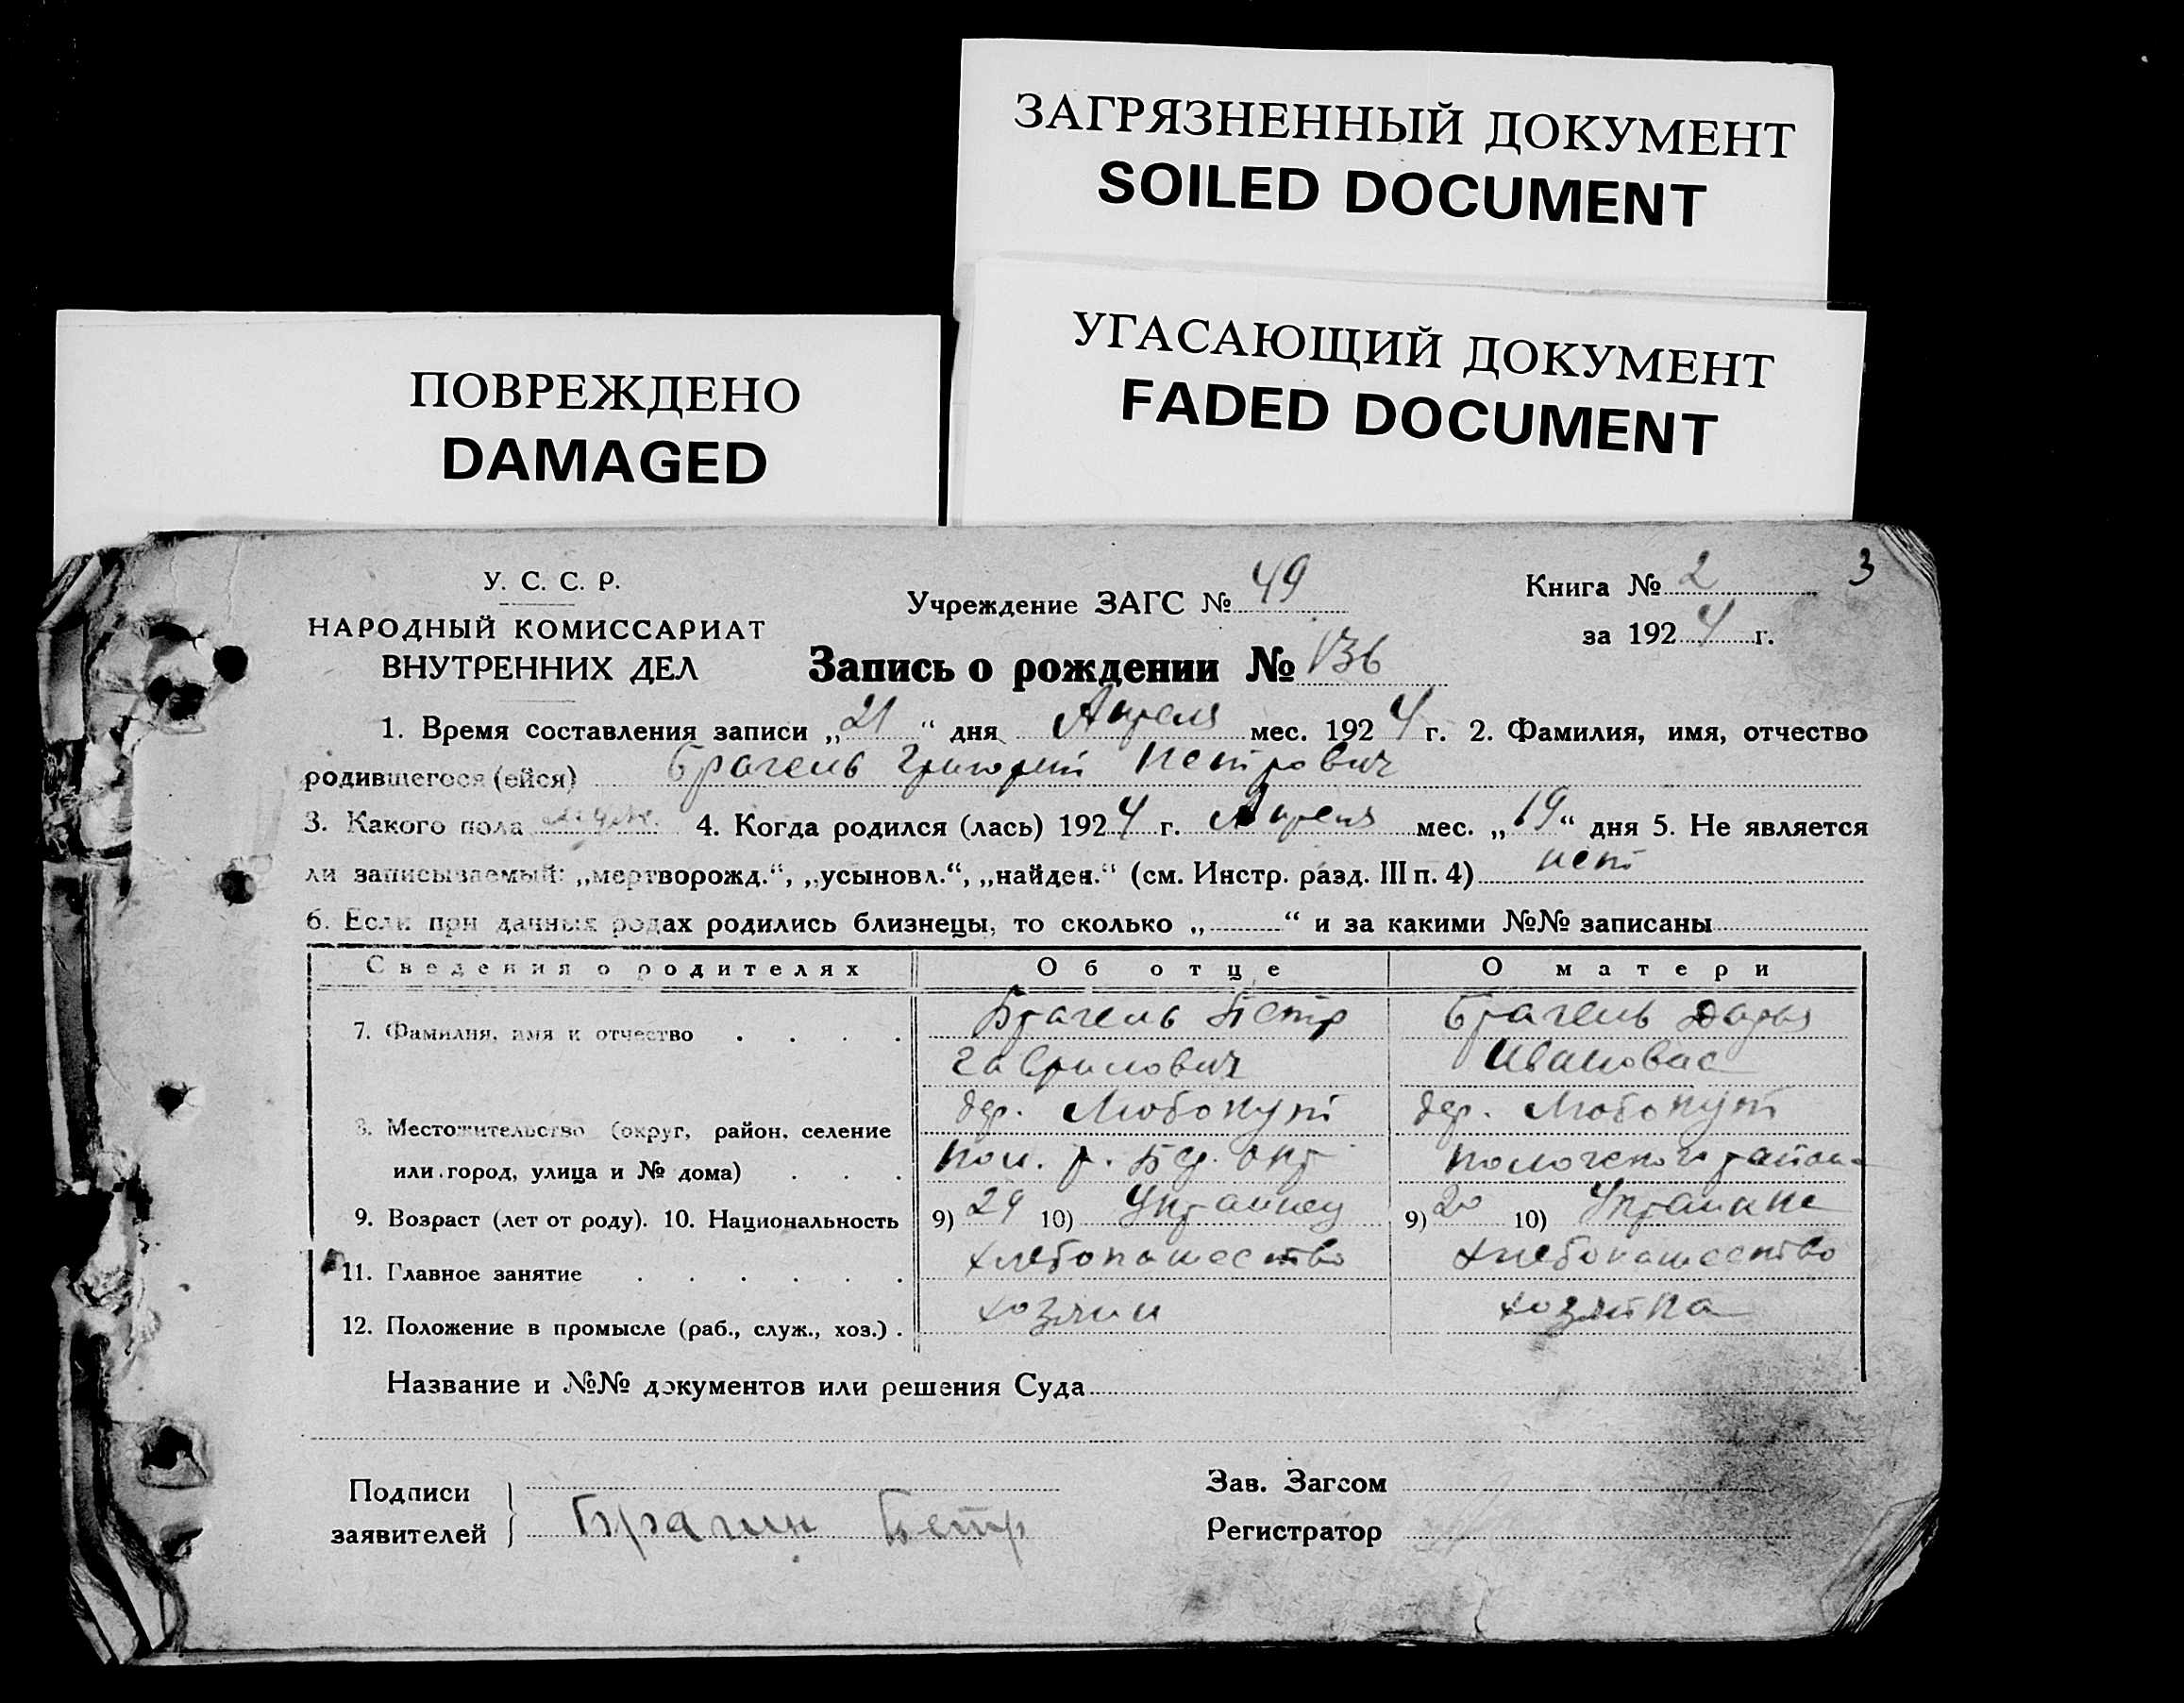 ЗАГРЯЗНЕННЫЙ ДОКУМЕНТ
SOILED DOCUMENT
УГАСАЮЩИЙ ДОКУМЕНТ
FADED DOCUMENT
ПОВРЕЖДЕНО
DAMAGED
3
У. С. С. Р.
НАРОДНЫЙ КОМИССАРИАТ
ВНУТРЕННИХ ДЕЛ
Учреждение ЗАГС № 49
Книга № 2
за 1924 г.
Запись о рождении № 136
1. Время составления записи „21“ дня Апреля мес. 1924 г. 2. Фамилия, имя, отчество
родившегося (ейся) Григорий Петрович
3. Какого пола муж. 4. Когда родился (лась) 1924 г. Апреля мес. „19“ дня 5. Не является
ли записываемый: „мертворожд.“, „усыновл.“, „найден.“ (см. Инстр. разд. III п. 4) нет
6. Если при данных родах родились близнецы, то сколько „ “ и за какими №№ записаны
Сведения о родителях Об отце О матери
7. Фамилия, имя и отчество Петр Дарья
Гаврилович Ивановна
дер. Любопут дер. Любопут
8. Местожительство (округ, район, селение
или город, улица и № дома)
9. Возраст (лет от роду). 10. Национальность 9) 29 10) Украинец 9) 20 10) Украинка
11. Главное занятие хлебопашество хлебопашество
12. Положение в промысле (раб., служ., хоз.) хозяин хозяйка
Название и №№ документов или решения Суда
Подписи
заявителей
Петр
Зав. Загсом
Регистратор